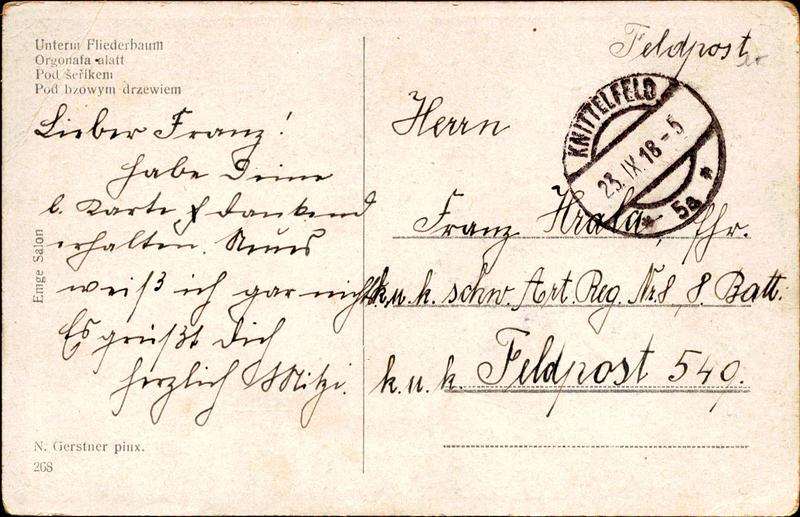 Unterm Fliederbaum
Orgonafa alatt
Pod šeříkem
Pod bzowym drzewiem
Lieber Franz!
habe Deine
l. Karte dankend
erhalten. Neues
weiß ich gar nicht.
Es grüßt Dich
herzlich Mitzi.
Emge Salon
N. Gerstner pinx.
268
Feldpost
KNITTELFELD
23. IX 18 - 5
* 5a *
Herrn
Franz Hrala, Ehr.
k.u.k. schw. Art. Reg. Nr. 8, 8. Batt.
k.u.k. Feldpost 549.